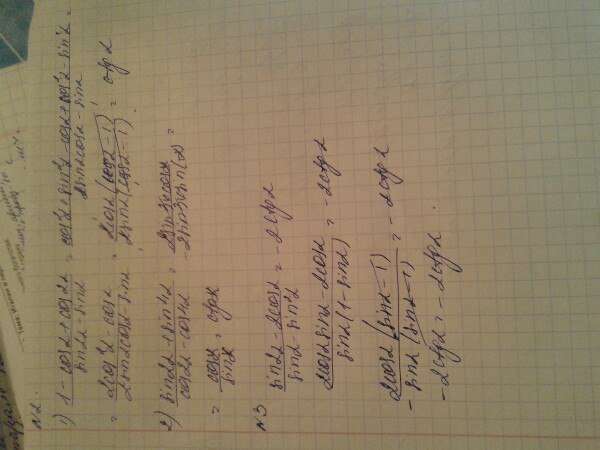 N2.
1) (1 - cosα + cos2α)/(sin2α - sinα) = (cos²α + sin²α - cosα + cos²α - sin²α)/(2sinαcosα - sinα) =
= (2cos²α - cosα)/(2sinαcosα - sinα) = (2cosα(cosα-1))/(2sinα(cosα-1)) = ctgα
2) (sin2α + sin4α)/(cos2α - cos4α) = (2sin3αcosα)/(-2sin3αsin(α)) =
= cosα/sinα = ctgα
N3
(sin2α - 2cosα)/(sinα - sin²α) = -2ctgα
(2cosαsinα - 2cosα)/(sinα(1-sinα)) = -2ctgα
(2cosα(sinα-1))/(-sinα(sinα-1)) = -2ctgα
-2ctgα = -2ctgα.